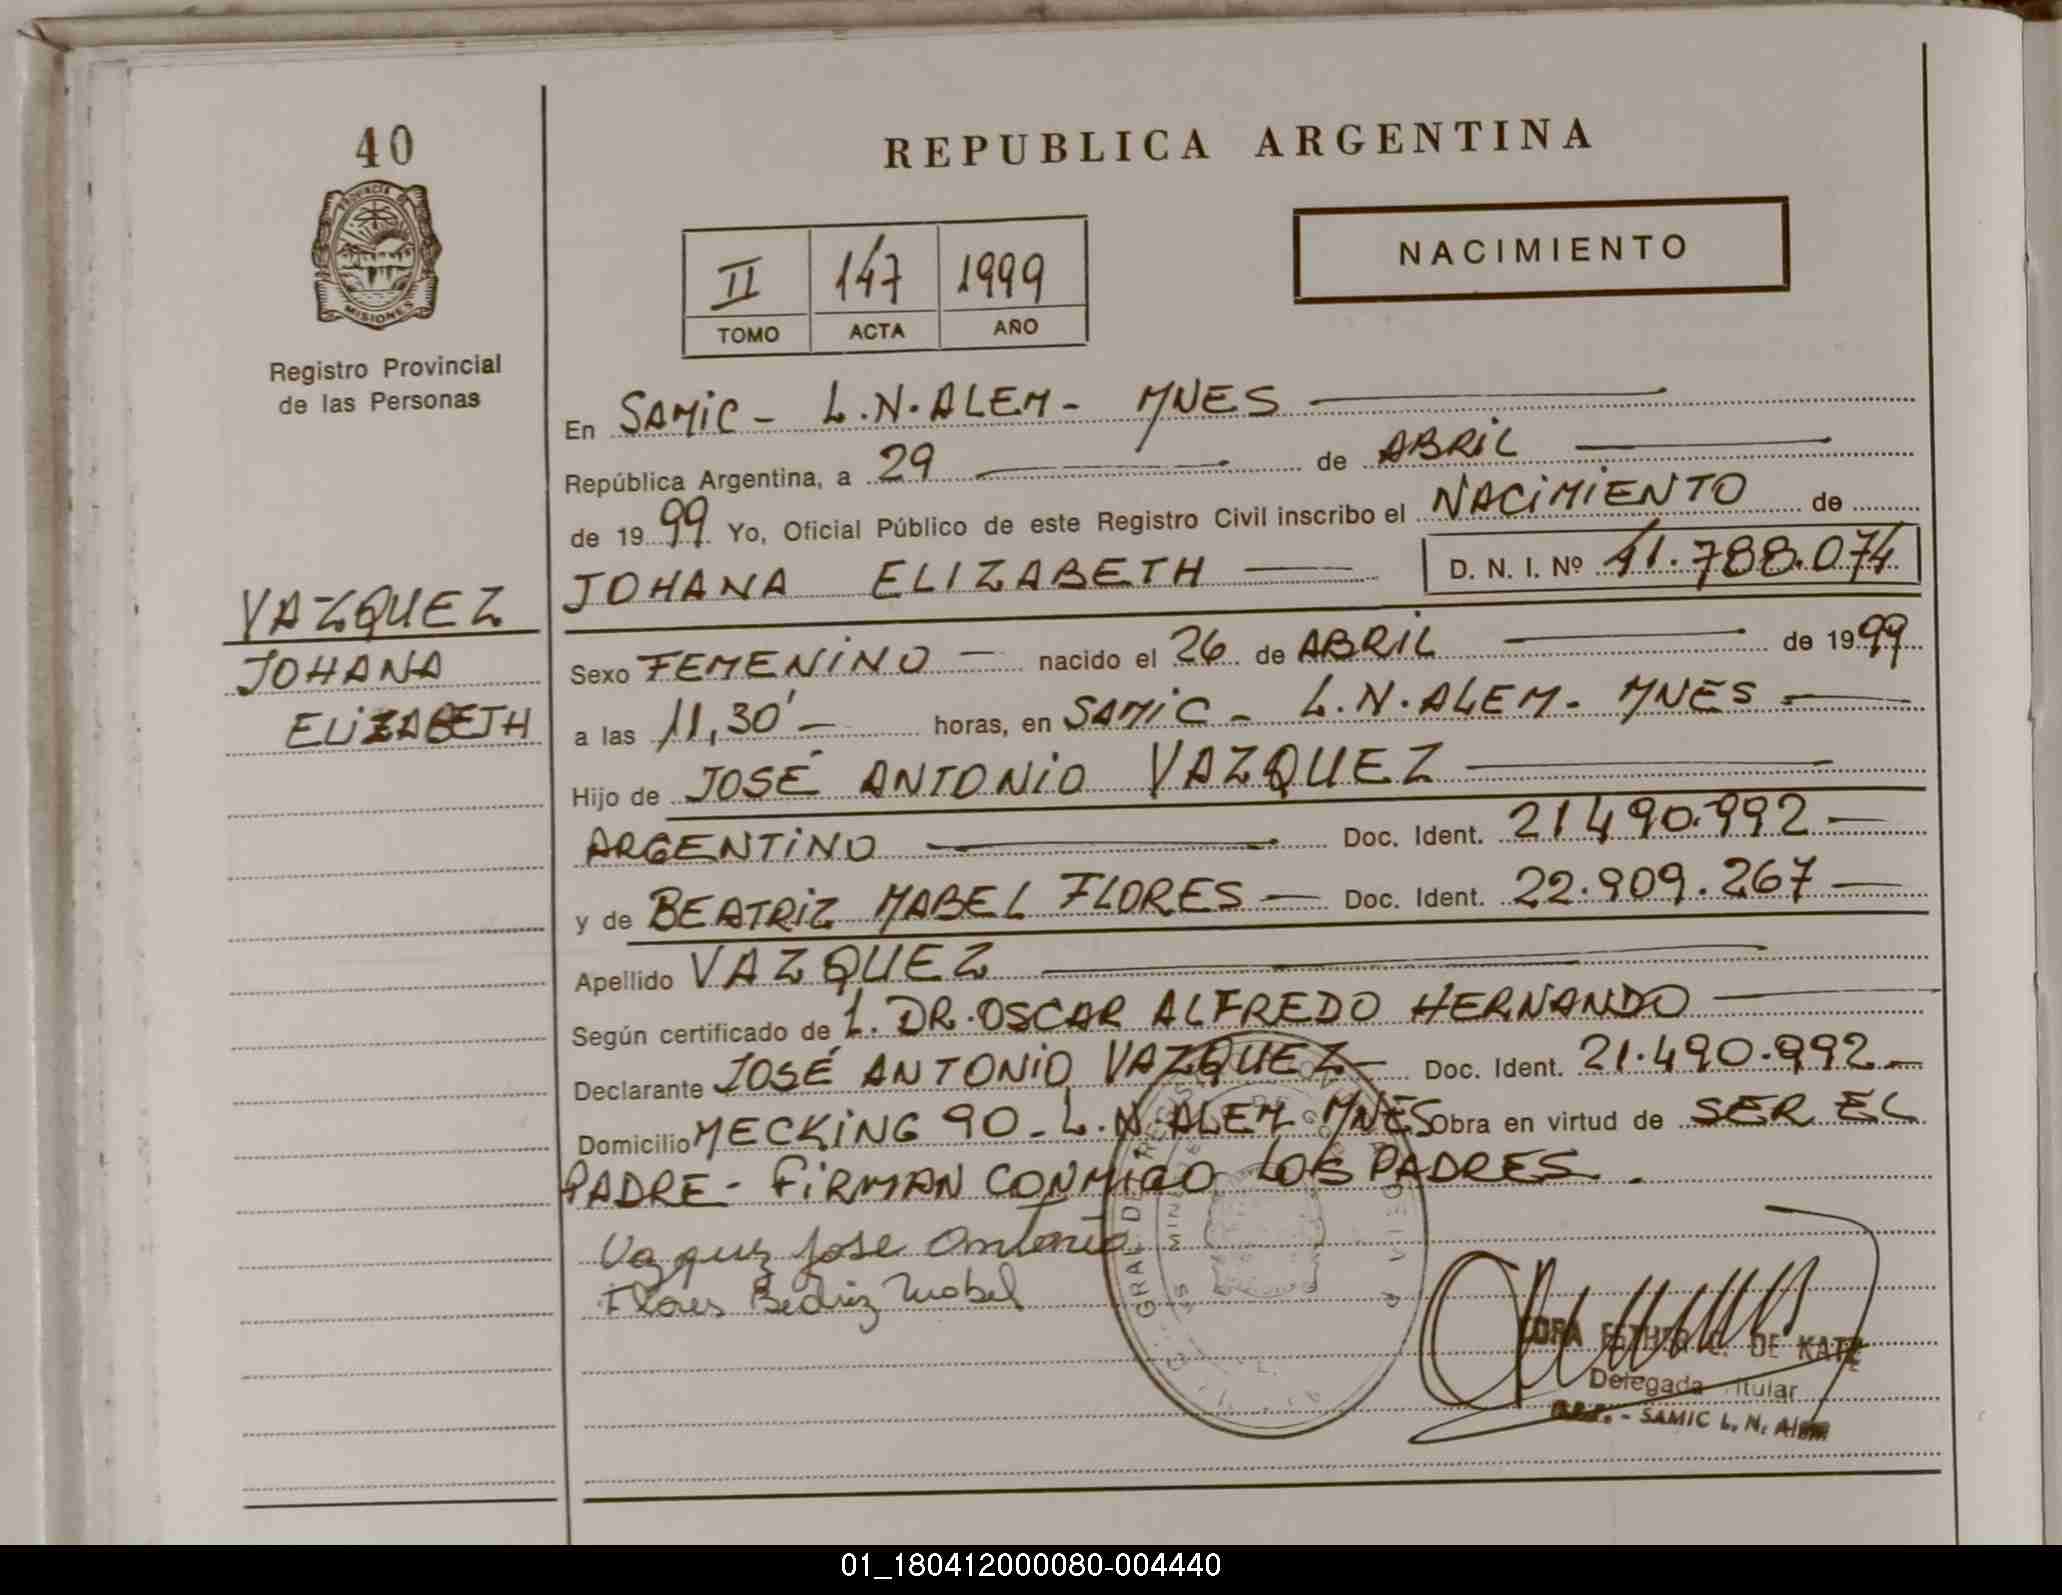 40
PROVINCIA DE
MISIONES
Registro Provincial
de las Personas
REPUBLICA ARGENTINA
NACIMIENTO
II 147 1999
TOMO ACTA AÑO
En SAMIC - L.N.ALEM - MNES
República Argentina, a 29 de ABRIL
de 1999 Yo, Oficial Público de este Registro Civil inscribo el NACIMIENTO de
JOHANA ELIZABETH D. N. I. Nº 41.788.074
VAZQUEZ
JOHANA
ELIZABETH
Sexo FEMENINO - nacido el 26 de ABRIL de 1999
a las 11,30' - horas, en SAMIC - L.N.ALEM - MNES -
Hijo de JOSÉ ANTONIO VAZQUEZ
ARGENTINO Doc. Ident. 21490.992 -
y de BEATRIZ MABEL FLORES - Doc. Ident. 22.909.267 -
Apellido VAZQUEZ
Según certificado de 1. DR. OSCAR ALFREDO HERNANDO
Declarante JOSÉ ANTONIO VAZQUEZ - Doc. Ident. 21.490.992 -
Domicilio MECKING 90 - L.N.ALEM MNES Obra en virtud de SER EL
PADRE - FIRMAN CONMIGO LOS PADRES.
Vazquez Jose Antonio
Flores Beatriz Mabel
ESTHER C. DE KATZ
Delegada Titular
- SAMIC L. N. Alem
01_180412000080-004440